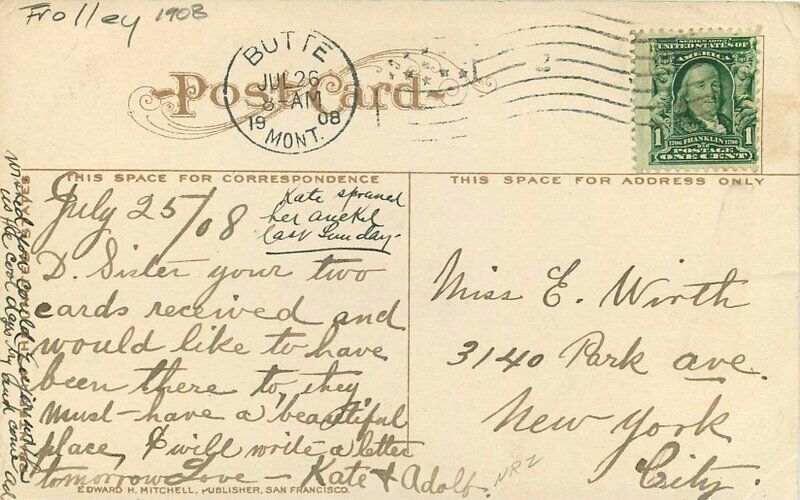 Trolley 1908
BUTTE
JUL 26
8-AM
1908
MONT.
Post Card
SERIES 1902
UNITED STATES OF
AMERICA
1 1
1706 FRANKLIN 1790
POSTAGE
ONE CENT
THIS SPACE FOR CORRESPONDENCE
THIS SPACE FOR ADDRESS ONLY
July 25/08
Kate spraned
her anckel
last Sunday.
D. Sister your two
cards received and
would like to have
been there to, they
must have a beautiful
place, I will write a letter
tomorrow Love - Kate & Adolf.
wished you could
us the cool days
Miss E. Wirth
3140 Park ave.
New York
City.
NRZ
EDWARD H. MITCHELL, PUBLISHER, SAN FRANCISCO.